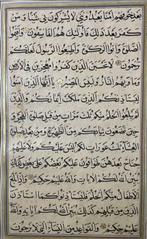 بَعْدِ خَوْفِهِمْ أَمْنًا يَعْبُدُونَنِي لَا يُشْرِكُونَ بِي شَيْئًا وَمَن
كَفَرَ بَعْدَ ذَٰلِكَ فَأُولَٰئِكَ هُمُ الْفَاسِقُونَ وَأَقِيمُوا
الصَّلَوٰةَ وَآتُوا الزَّكَوٰةَ وَأَطِيعُوا الرَّسُولَ لَعَلَّكُمْ
تُرْحَمُونَ لَا تَحْسَبَنَّ الَّذِينَ كَفَرُوا مُعْجِزِينَ فِي الْأَرْضِ
وَمَأْوَاهُمُ النَّارُ وَلَبِئْسَ الْمَصِيرُ يَا أَيُّهَا الَّذِينَ آمَنُوا
لِيَسْتَأْذِنكُمُ الَّذِينَ مَلَكَتْ أَيْمَانُكُمْ وَالَّذِينَ
لَمْ يَبْلُغُوا الْحُلُمَ مِنكُمْ ثَلَاثَ مَرَّاتٍ مِّن قَبْلِ صَلَوٰةِ
الْفَجْرِ وَحِينَ تَضَعُونَ ثِيَابَكُم مِّنَ الظَّهِيرَةِ وَمِن بَعْدِ صَلَوٰةِ
الْعِشَاءِ ثَلَاثُ عَوْرَاتٍ لَّكُمْ لَيْسَ عَلَيْكُمْ وَلَا عَلَيْهِمْ
جُنَاحٌ بَعْدَهُنَّ طَوَّافُونَ عَلَيْكُم بَعْضُكُمْ عَلَىٰ بَعْضٍ كَذَٰلِكَ
يُبَيِّنُ اللَّهُ لَكُمُ الْآيَاتِ وَاللَّهُ عَلِيمٌ حَكِيمٌ وَإِذَا بَلَغَ
الْأَطْفَالُ مِنكُمُ الْحُلُمَ فَلْيَسْتَأْذِنُوا كَمَا اسْتَأْذَنَ
الَّذِينَ مِن قَبْلِهِمْ كَذَٰلِكَ يُبَيِّنُ اللَّهُ لَكُمْ آيَاتِهِ وَاللَّهُ
عَلِيمٌ حَكِيمٌ وَالْقَوَاعِدُ مِنَ النِّسَاءِ اللَّاتِي لَا يَرْجُونَ